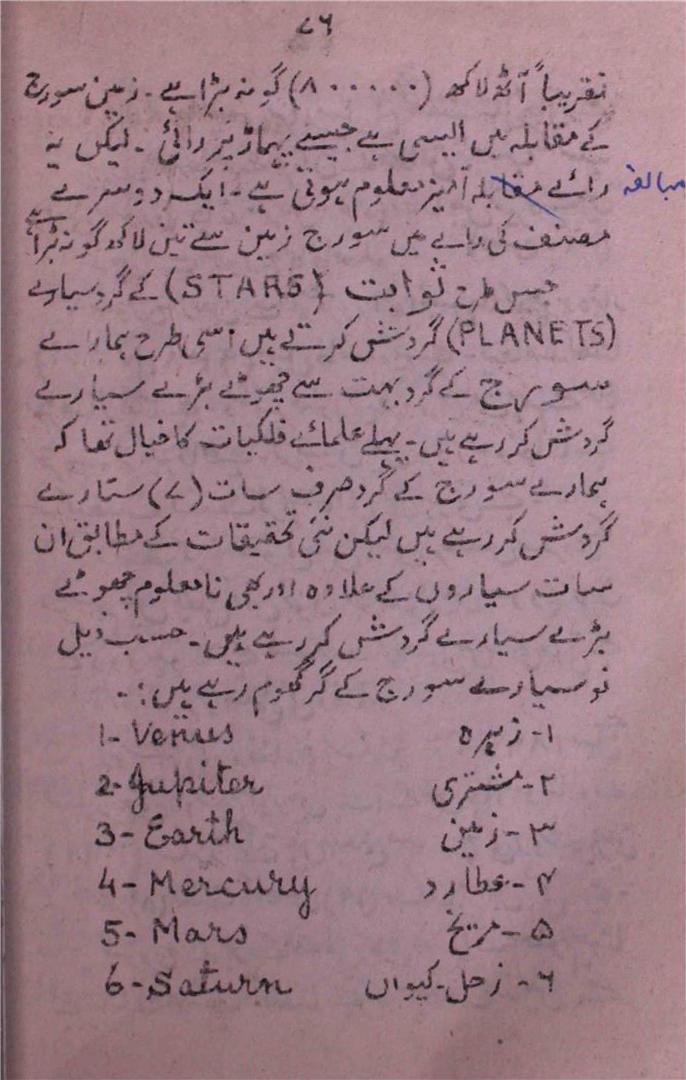 ۷۶
تقریباً آٹھ لاکھ (۸۰۰۰۰۰) گونہ بڑا ہے ۔ زمین سورج
کے مقابلہ میں ایسی ہے جیسے پہاڑ پر رائی ۔ لیکن یہ
رائے مقابلہ آمیز معلوم ہوتی ہے ۔ ایک دوسرے مبالغہ
مصنف کی رائے میں سورج زمین سے تین لاکھ گونہ بڑا ہے
جس طرح ثوابت (STARS) کے گرد سیارے
(PLANETS) گردش کرتے ہیں اسی طرح ہمارے
سورج کے گرد بہت سے چھوٹے بڑے سیارے
گردش کر رہے ہیں ۔ پہلے علمائے فلکیات کا خیال تھا کہ
ہمارے سورج کے گرد صرف سات (۷) ستارے
گردش کر رہے ہیں لیکن نئی تحقیقات کے مطابق ان
سات سیاروں کے علاوہ اور بھی نامعلوم چھوٹے
بڑے سیارے گردش کر رہے ہیں ۔ حسب ذیل
نو سیارے سورج کے گر گھوم رہے ہیں :۔
۱- زہرہ 1- Venus
۲- مشتری 2- Jupiter
۳- زمین 3- Earth
۴- عطارد 4- Mercury
۵- مریخ 5- Mars
۶- زحل-کیواں 6- Saturn